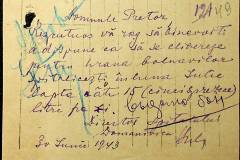 12149
Domnule Pretor
Respectuos vă rog să binevoiți
a dispune ca să se elibereze
pentru hrana bolnavilor
în luna Iulie
lapte câte 15 (cincisprezece)
litri pe zi.
Director Spitalului
Domanovca
30 Iunie 1943